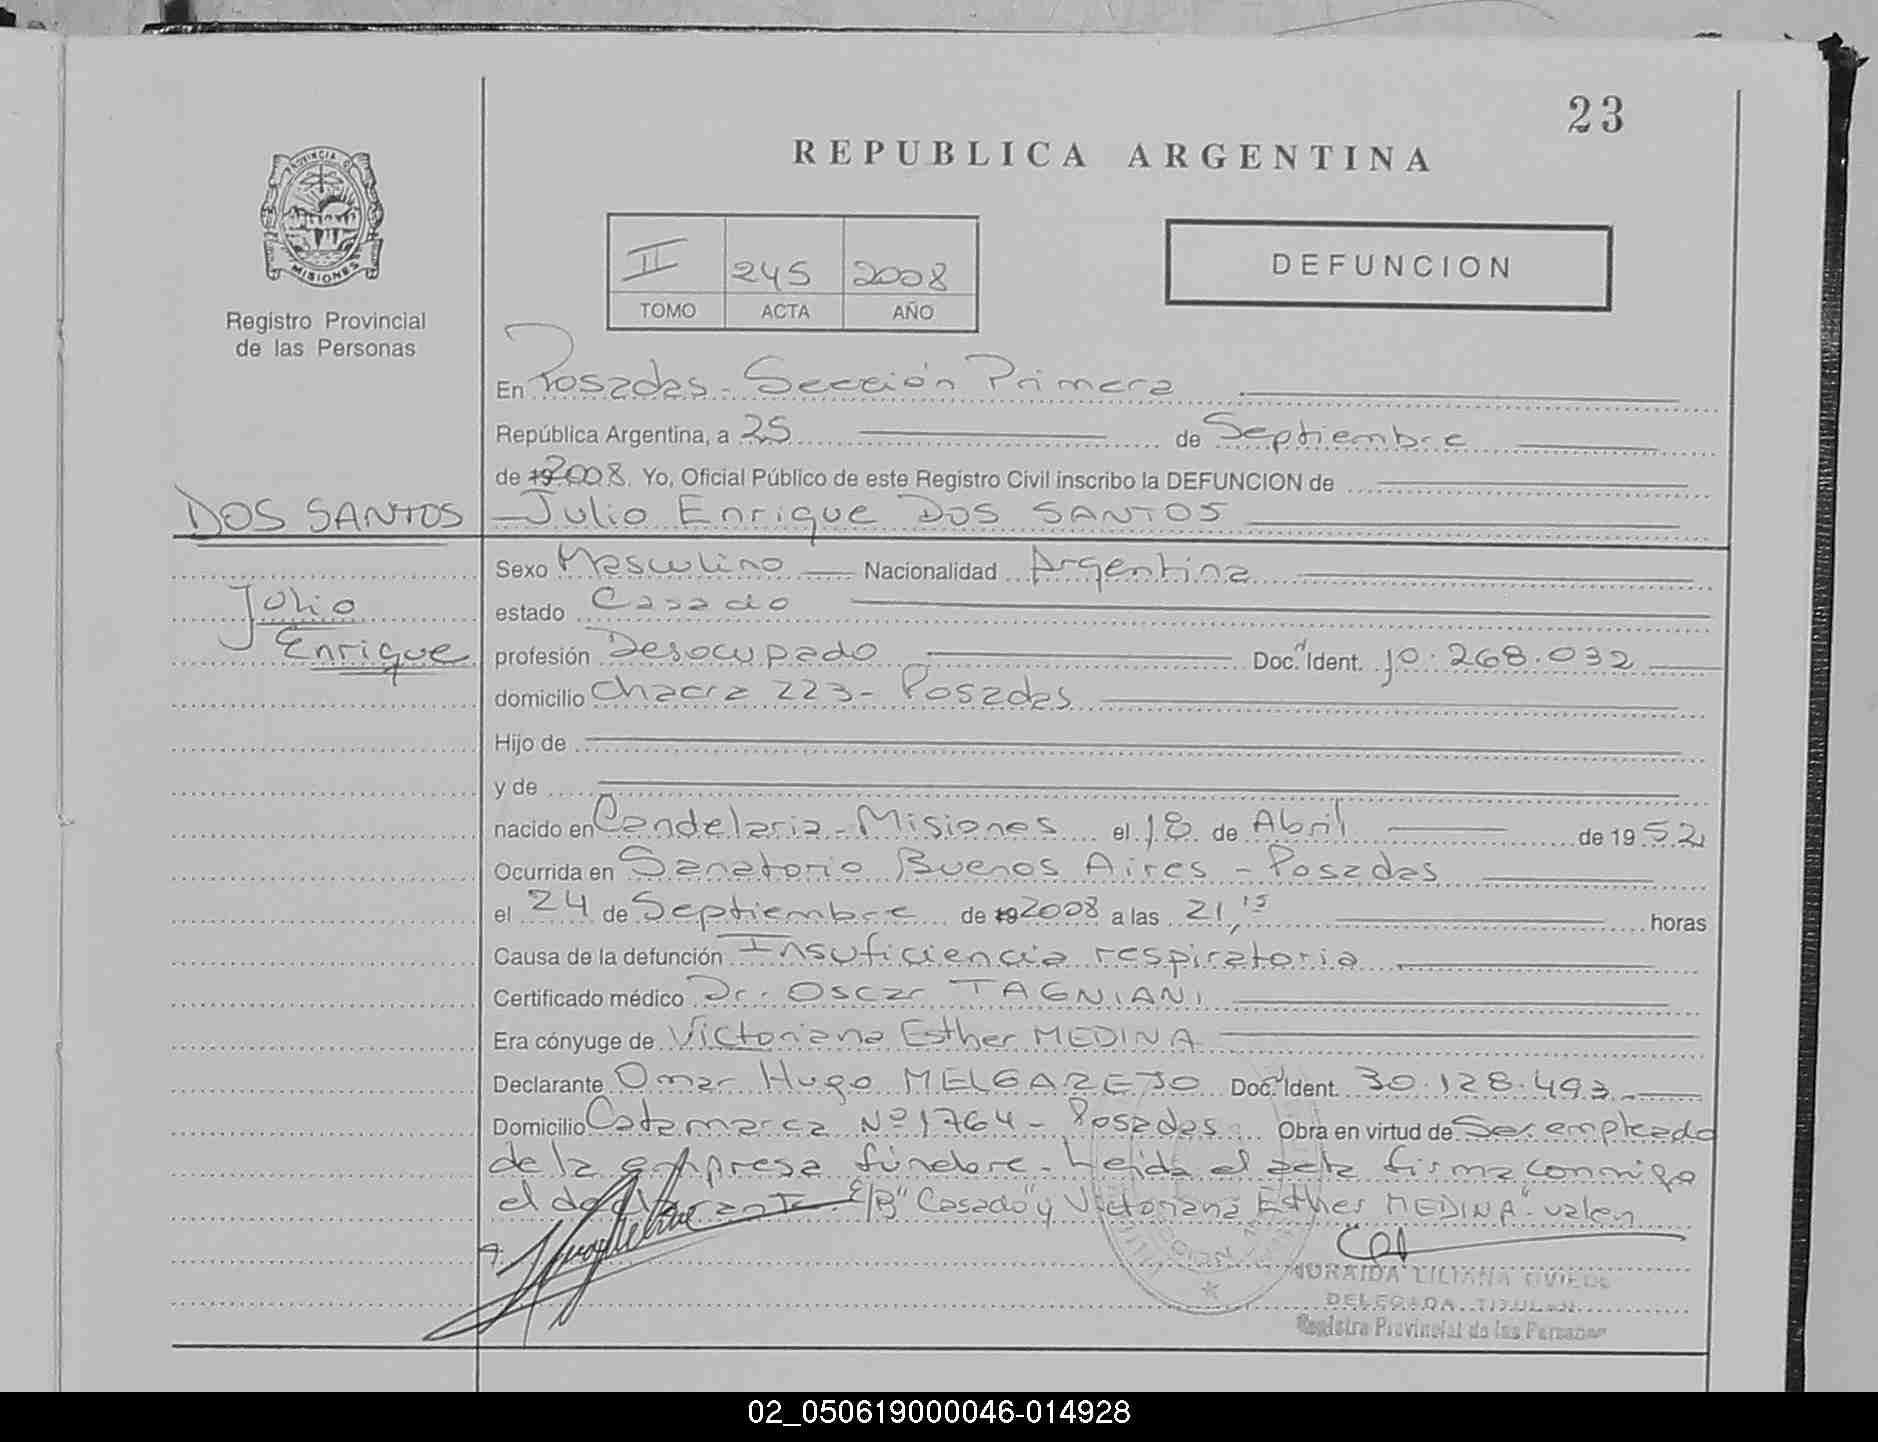 23
REPUBLICA ARGENTINA
PROVINCIA DE
MISIONES
II 245 2008
TOMO ACTA AÑO
DEFUNCION
Registro Provincial
de las Personas
En Posadas - Sección Primera
República Argentina, a 25 de Septiembre
de 192008. Yo, Oficial Público de este Registro Civil inscribo la DEFUNCION de
DOS SANTOS
Julio
Enrique
Julio Enrique DOS SANTOS
Sexo Masculino Nacionalidad Argentina
estado Casado
profesión Desocupado Doc. Ident. 10.268.032
domicilio Chacra 223 - Posadas
Hijo de
y de
nacido en Candelaria - Misiones el 18 de Abril de 1952
Ocurrida en Sanatorio Buenos Aires - Posadas
el 24 de Septiembre de 192008 a las 21,15 horas
Causa de la defunción Insuficiencia respiratoria
Certificado médico Dr. Oscar TAGNIANI
Era cónyuge de Victoriana Esther MEDINA
Declarante Omar Hugo MELGAREJO Doc. Ident. 30.128.493
Domicilio Catamarca Nº 1764 - Posadas Obra en virtud de Ser empleado
de la empresa fúnebre - Leida el acta firma conmigo
el declarante. E/B "Casado" y Victoriana Esther MEDINA" valen
LILIANA
DELEGADA TITULAR
Registro Provincial de las Personas
02_050619000046-014928